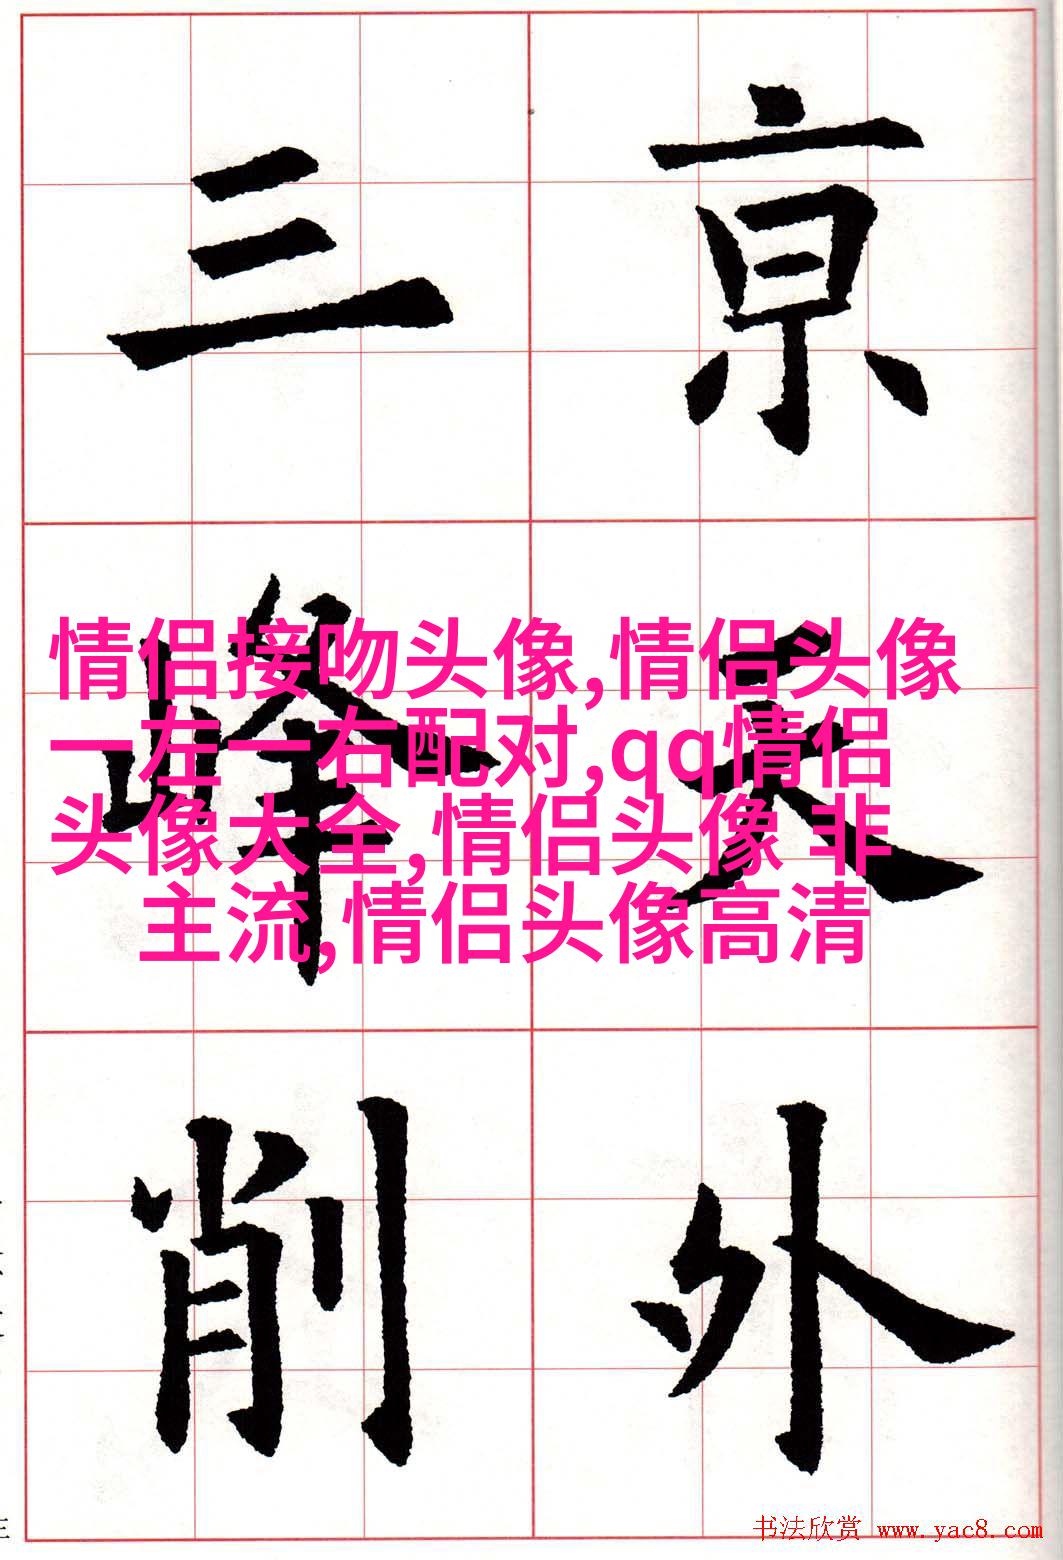 亰天外
三峰削
情侣接吻头像,情侣头像
一左一右配对,qq情侣
头像大全,情侣头像 非
主流,情侣头像高清
书法欣赏 www.yac8.com